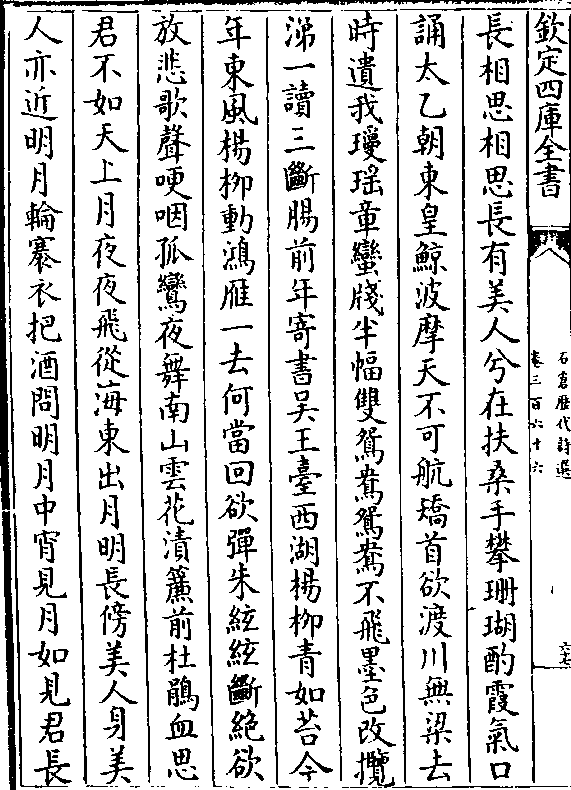 欽定四庫全書
石倉歷代詩選
卷三百六十六
六七
長相思相思長有美人兮在扶桑手攀珊瑚酌霞氣口
誦太乙朝東皇鯨波摩天不可航矯首欲渡川無梁去
時遺我瓊瑶章蠻牋半幅雙鴛鴦鴛鴦不飛墨色改攬
涕一讀三斷腸前年寄書吴王臺西湖楊柳青如苔今
年東風楊柳動鴻雁一去何當回欲彈朱絃絃斷絶欲
放悲歌聲哽咽孤鸞夜舞南山雲花漬簾前杜鵑血思
君不如天上月夜夜飛從海東出月明長傍美人身美
人亦近明月輪褰衣把酒問明月中宵見月如見君長